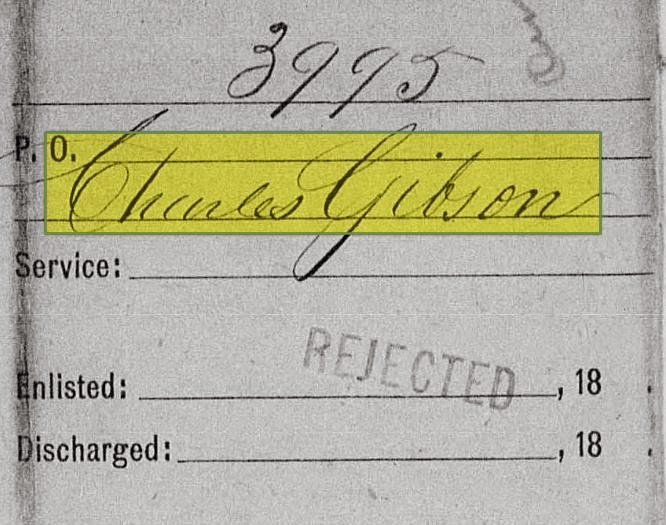 3995
P. O.
Charles Gibson
Service:
REJECTED
Enlisted: , 18 .
Discharged: , 18 .